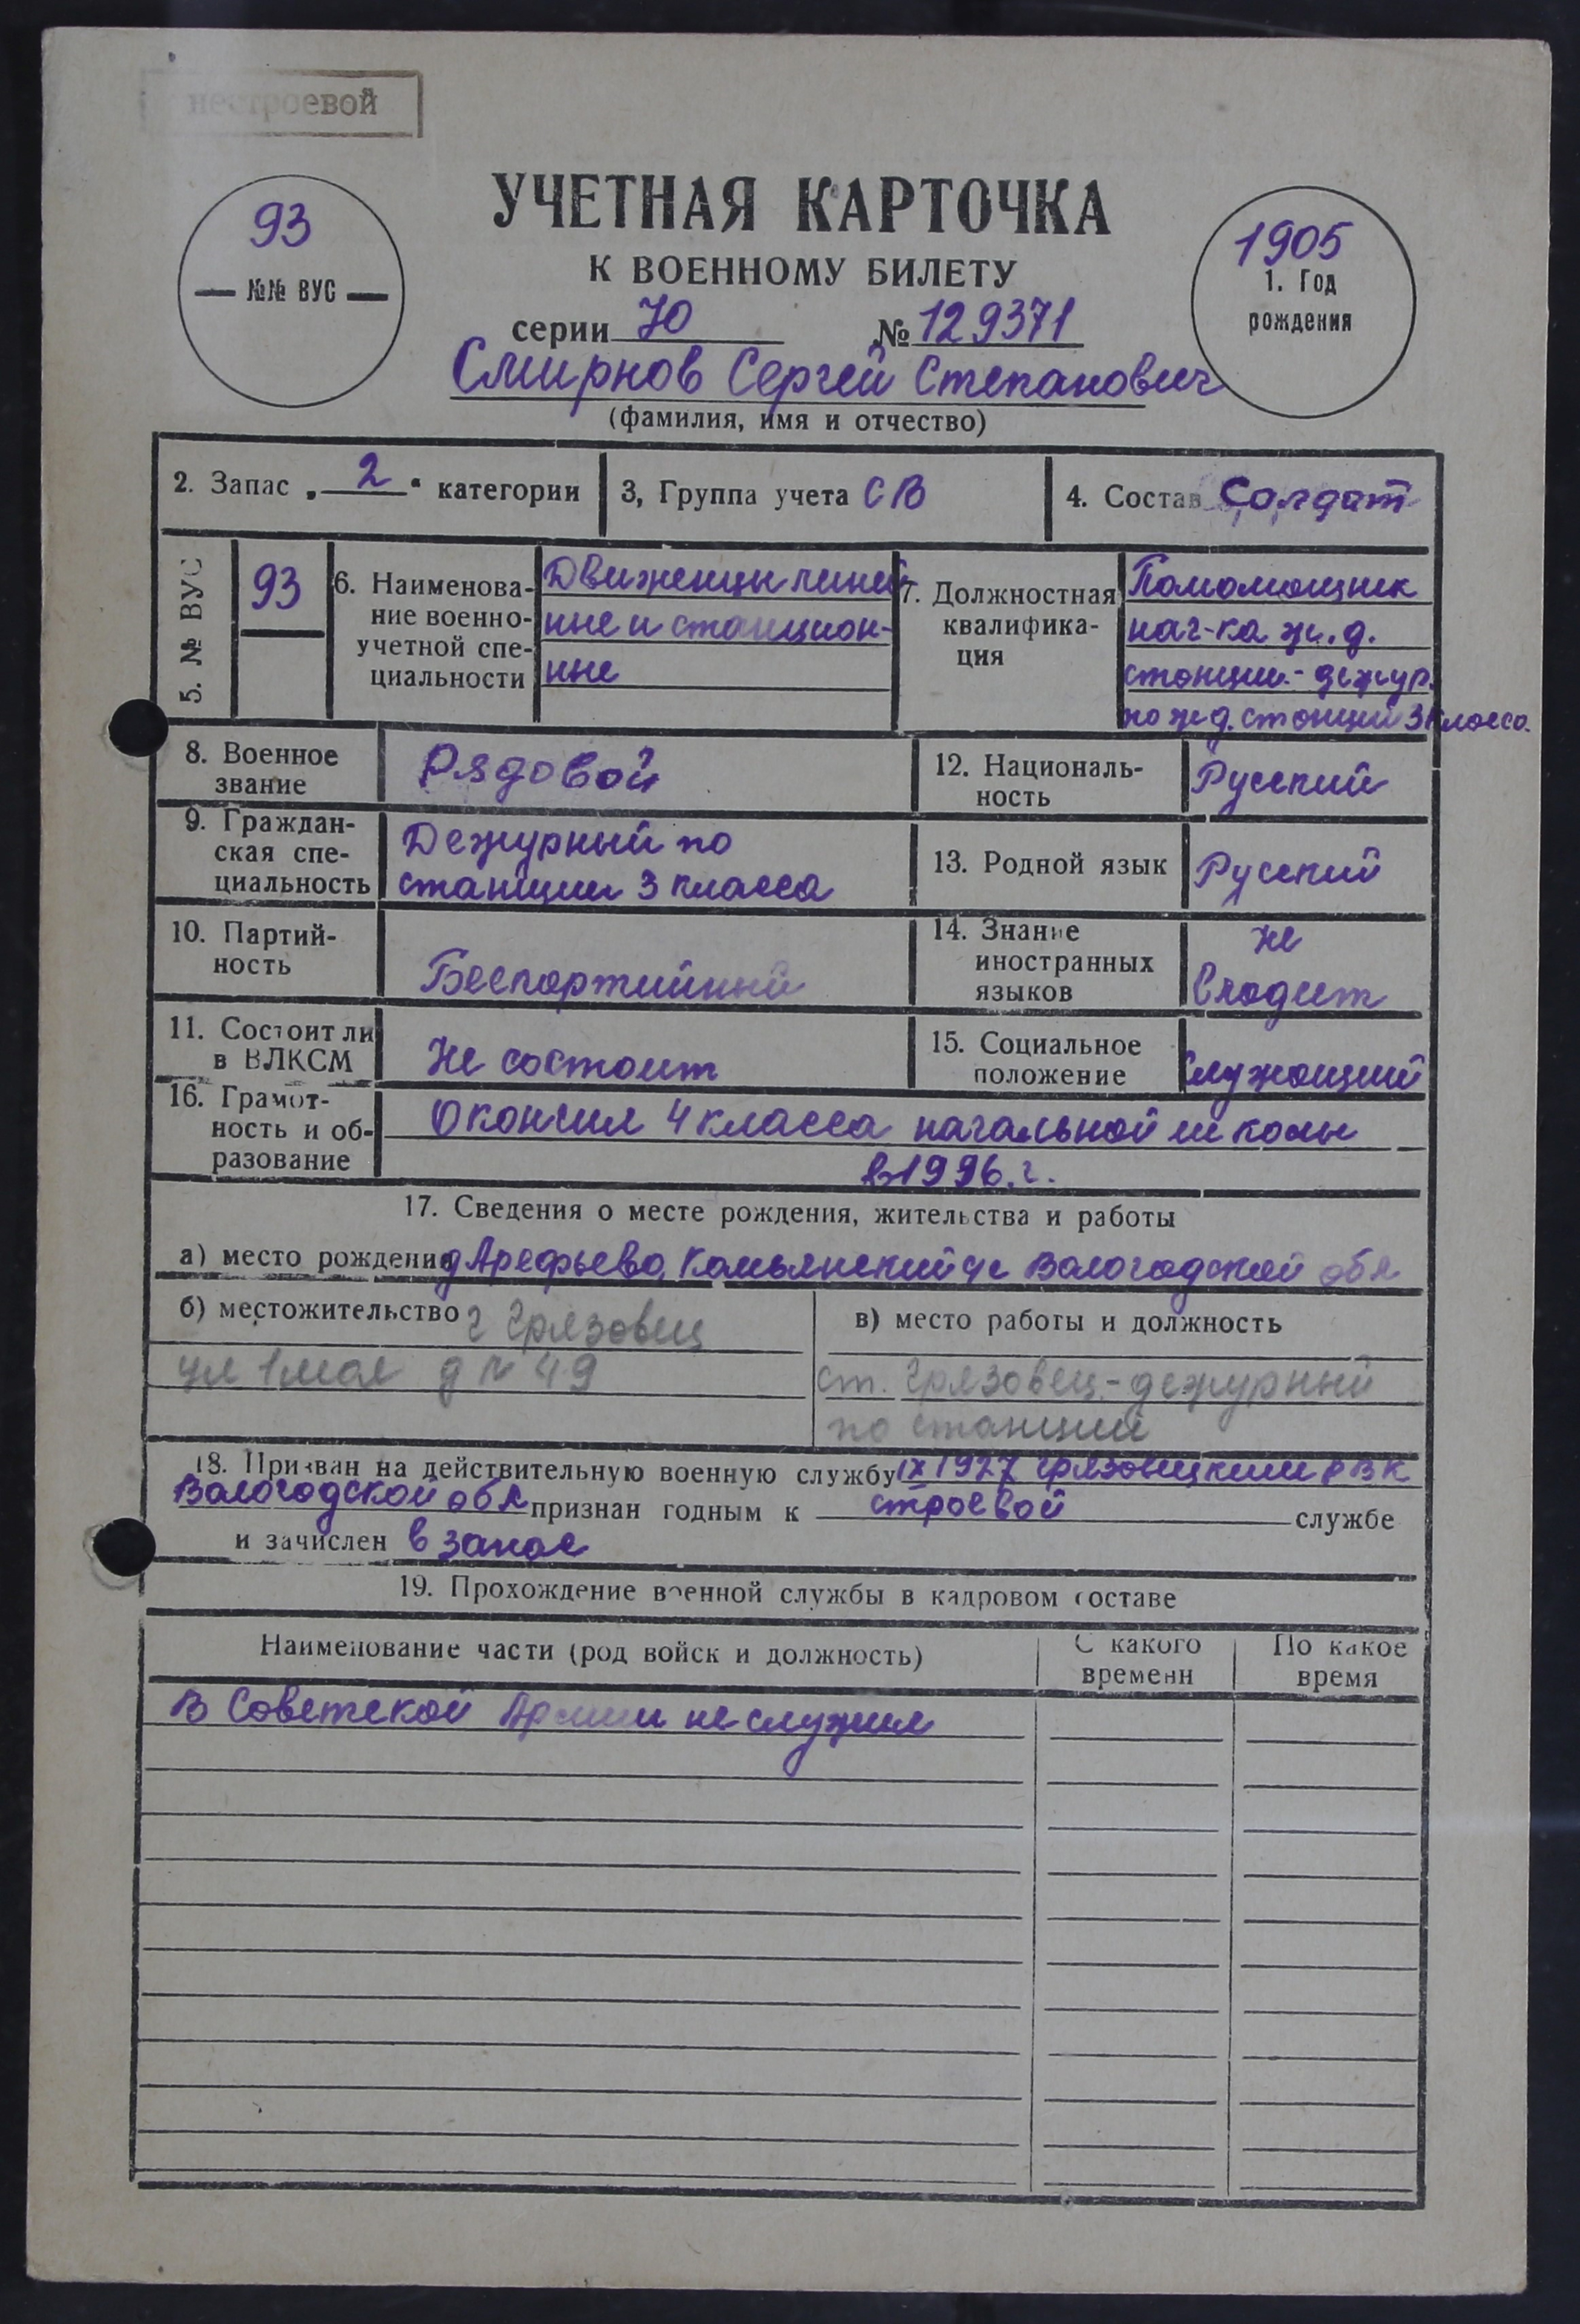 нестроевой
93
№№ ВУС
УЧЕТНАЯ КАРТОЧКА
К ВОЕННОМУ БИЛЕТУ
серии Ю № 129371
Смирнов Сергей Степанович
(фамилия, имя и отчество)
1905
1. Год
рождения
2. Запас „2“ категории
3, Группа учета СВ
4. Состав Солдат
5. № ВУС
93
6. Наименова-
ние военно-
учетной спе-
циальности
Движенцы линей
ные и станцион-
ные
7. Должностная
квалифика-
ция
Помомощник
нач-ка ж.д.
станции-дежур.
по ж.д. станции 3 класса.
8. Военное
звание
Рядовой
12. Националь-
ность
Русский
9. Граждан-
ская спе-
циальность
Дежурный по
станции 3 класса
13. Родной язык
Русский
10. Партий-
ность
Беспартийный
14. Знание
иностранных
языков
не
владеет
11. Состоит ли
в ВЛКСМ
Не состоит
15. Социальное
положение
Служащий
16. Грамот-
ность и об-
разование
Окончил 4 класса начальной школы
в 1996.г.
17. Сведения о месте рождения, жительства и работы
а) место рождения д Арефьево, Вологодской обл
б) местожительство г Грязовец
ул 1 мая д № 49
в) место работы и должность
ст. Грязовец-дежурный
по станции
18. Призван на действительную военную службу IX 1927 Грязовецким РВК
Вологодской обл признан годным к строевой службе
и зачислен в запас
19. Прохождение военной службы в кадровом составе
Наименование части (род войск и должность)
С какого
времени
По какое
время
В Советской Армии не служил